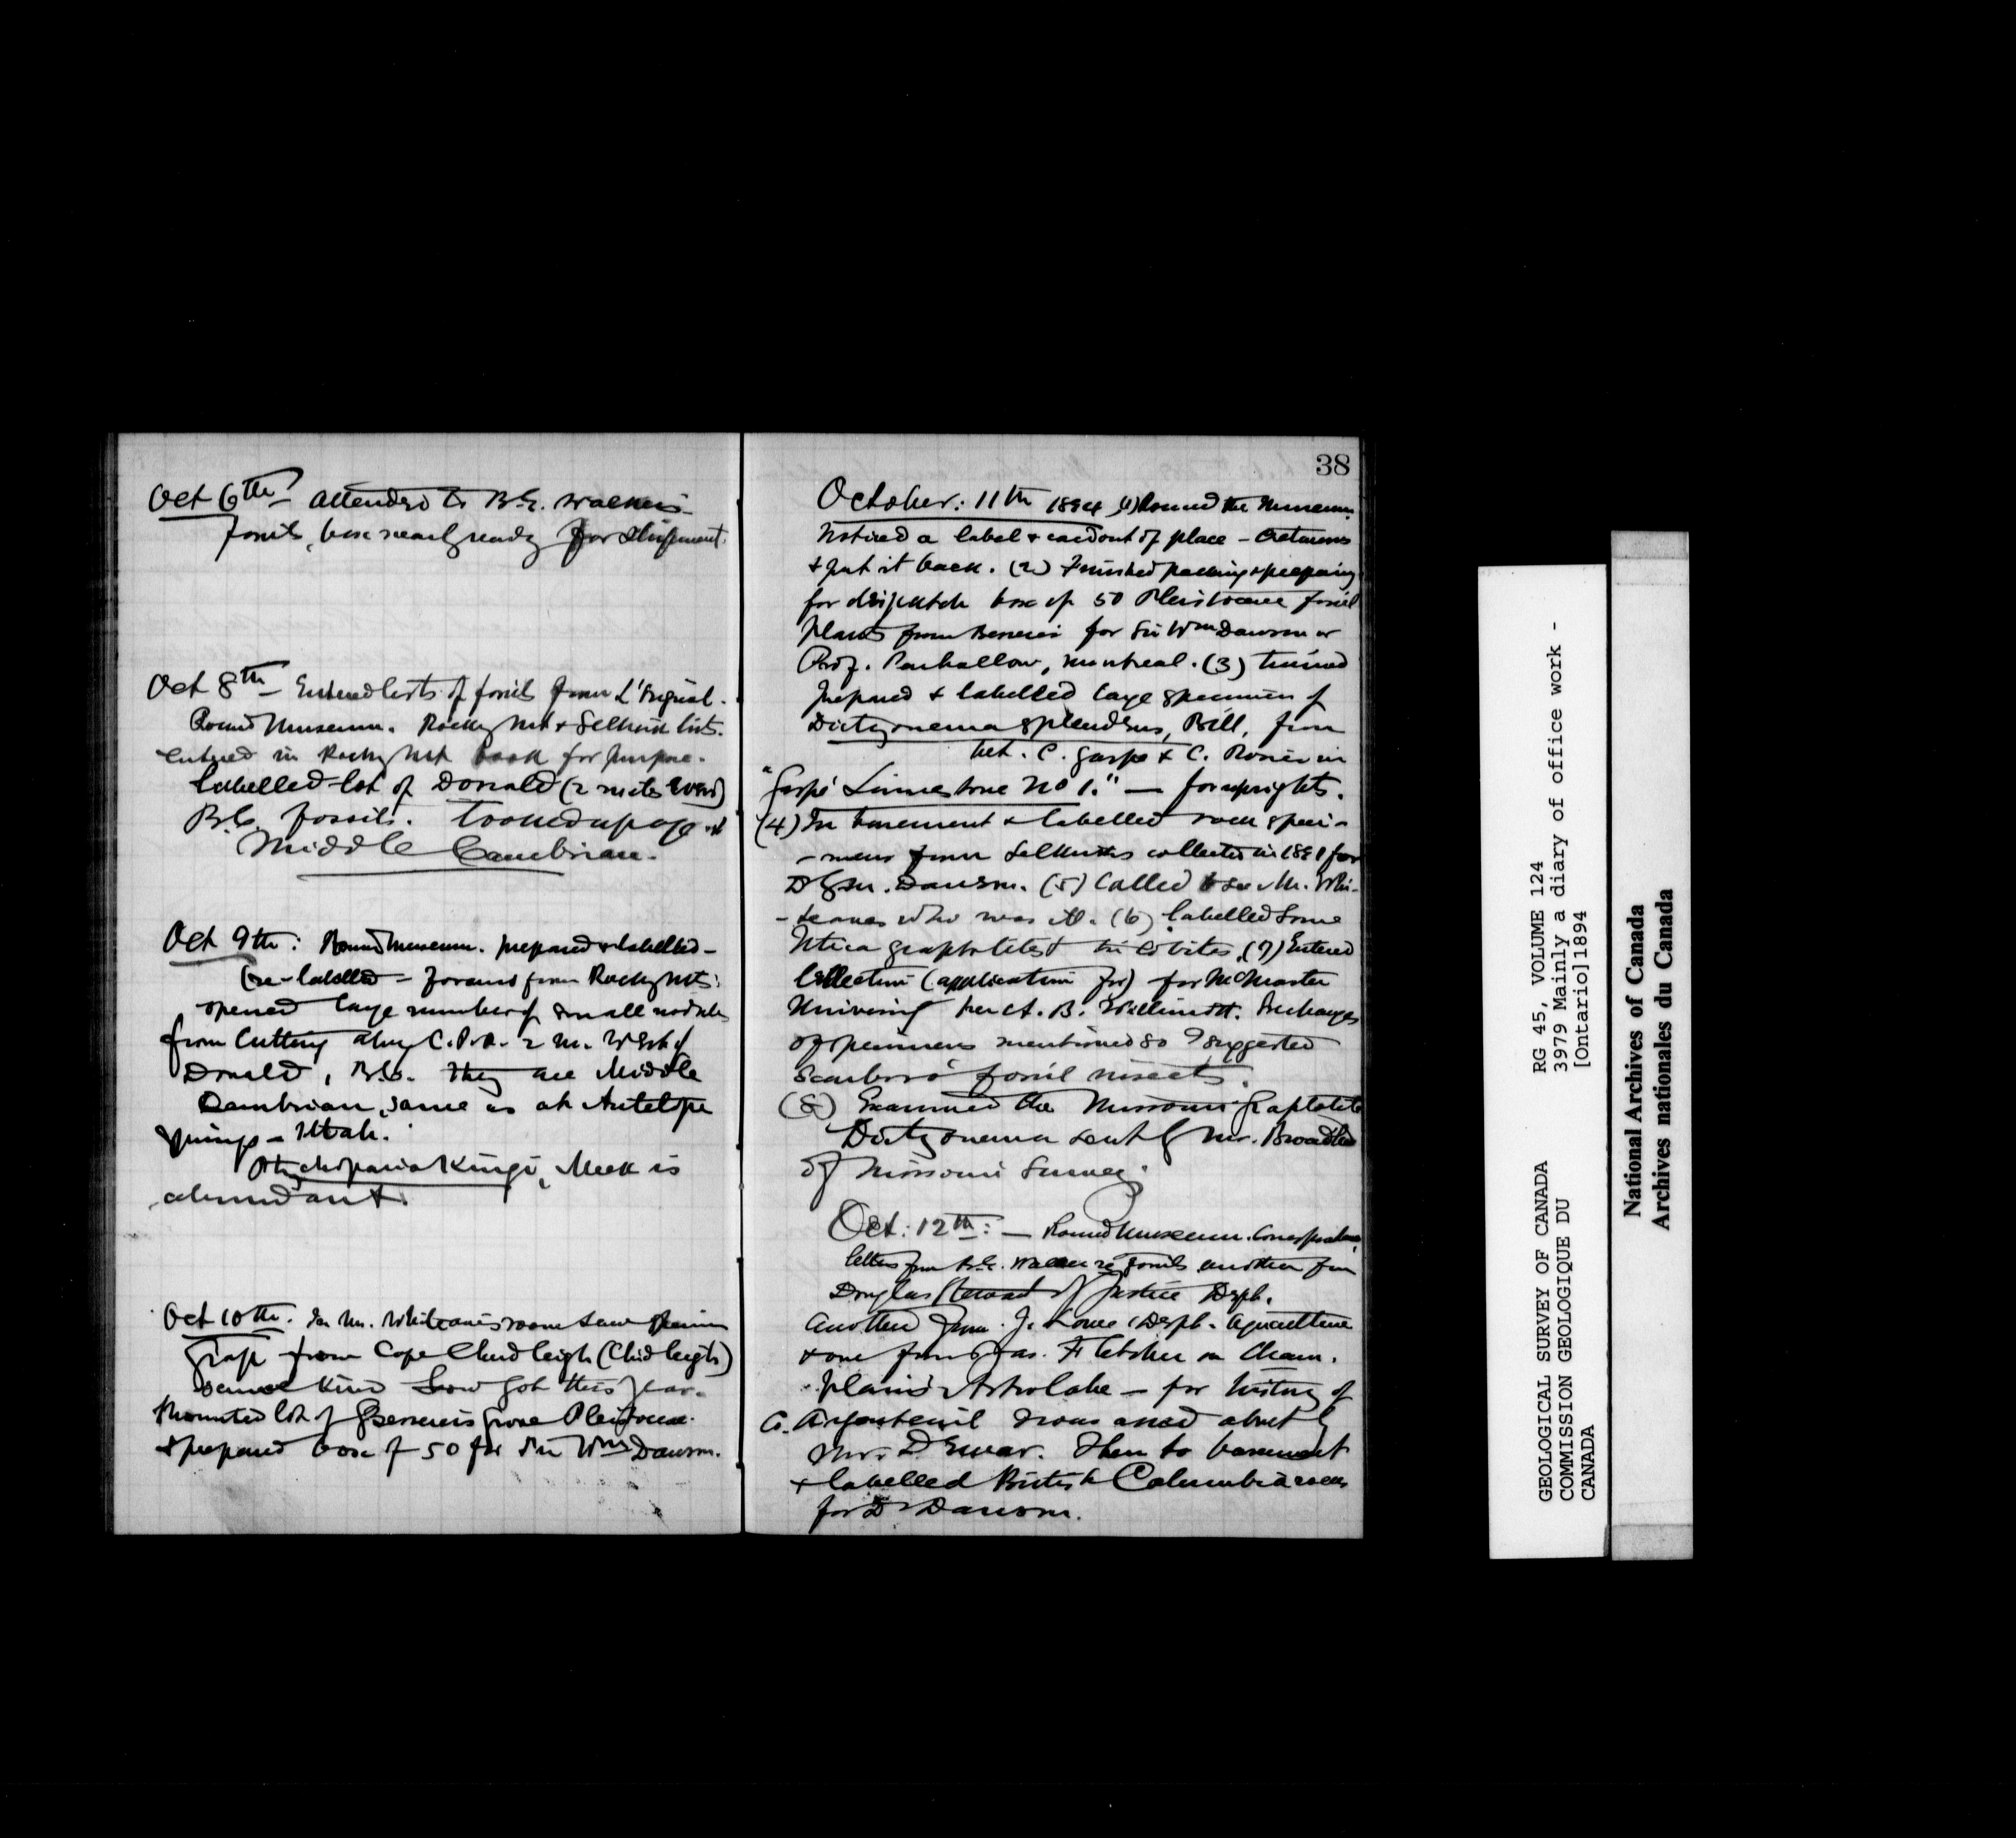 Oct 6th attended to B.E. Walker's
fossils, box nearly ready for shipment.
Oct 8th - Entered lists of fossils from L'Orignal.
Round Museum. Rocky Mt. & Selkirk lists.
entered in Rocky Mt book for purpose.
labelled lot of Donald (2 miles West)
B.C. fossils. Looked up age &
Middle Cambrian.
Oct 9th: Round Museum. prepared & labelled -
(re-labelled - from Rocky Mts:
opened large number of small nodules
from cutting along C.P.R. 2 m. West of
Donald, B.C. They are Middle
Cambrian, same as at Antelope
Springs - Utah.
Ptychoparia Kingi, Meek is
abundant.
Oct 10th. In Mr. Whiteaves room saw
Trap from Cape Chudleigh (Chidleigh)
same kind Low got this year.
Mounted lot of Besserer's grove Pleistocene
& prepared box of 50 for Sir Wm Dawson.
38
October: 11th 1894 (1) Round the Museum
Noticed a label & card out of place - Cretaceous
& put it back. (2) Finished packing & preparing
for dispatch box of 50 Pleistocene fossil
plants from Besserer's for Sir Wm Dawson or
Prof. Penhallow, Montreal. (3) trimmed
prepared & labelled large specimen of
Dictyonema splendens, Bill, from
bet. C. Gaspé & C. Rosier in
"Gaspé Limestone No 1." — for uprights.
(4) In basement & labelled rock speci-
-mens from Selkirks collected in 1891 for
Dr G.M. Dawson. (5) Called to see Mr. Whi-
-teaves who was ill. (6) labelled some
Utica graptolites & trilobites. (7) Entered
Collection (application for) for McMaster
University per A. B. Willmott. Exchanges
of specimens mentioned so I suggested
Scarboro' fossil insects.
(8) Examined the Missouri graptolite
Dictyonema sent by Mr. Broadhead
of Missouri Survey.
Oct: 12th: — Round Museum. Correspondence
letters from B.E. Walker re fossils another from
Douglas Stewart of Justice Dept.
Another from J. Lowe (Dept. Agriculture
& one from Jas. Fletcher on Cham-
plain's Astrolabe — for history of
Co. Argenteuil
Mr. Dewar. Then to basement
& labelled British Columbia rocks
for Dr Dawson.
GEOLOGICAL SURVEY OF CANADA
COMMISSION GEOLOGIQUE DU
CANADA
RG 45, VOLUME 124
3979 Mainly a diary of office work -
[Ontario]1894
National Archives of Canada
Archives nationales du Canada